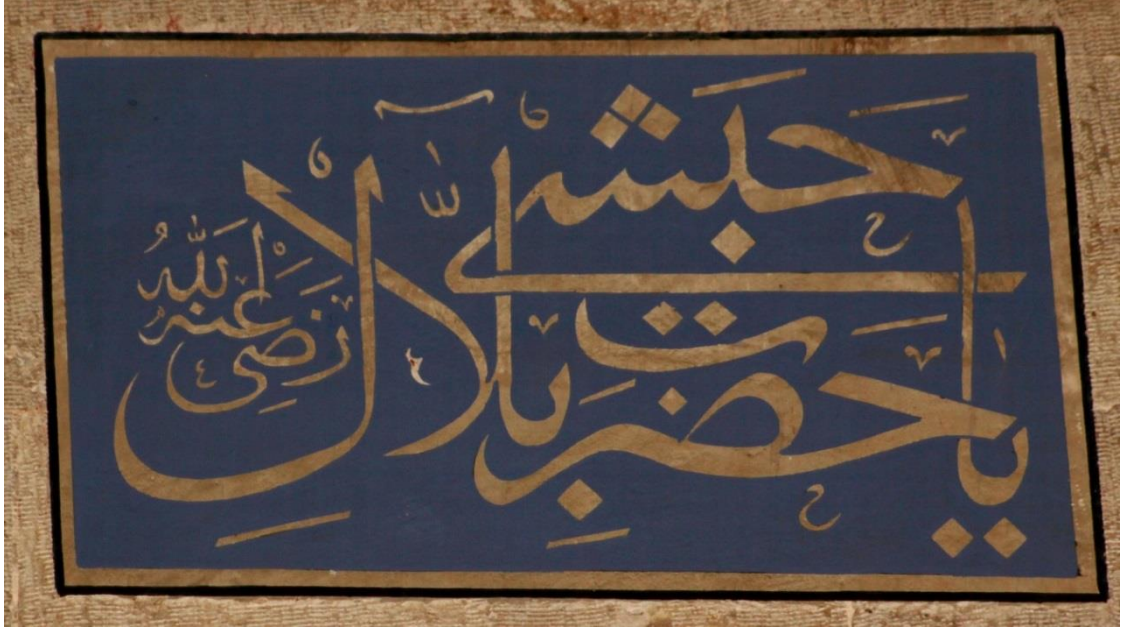 يا حضرت بلال حبشي رضي الله عنه